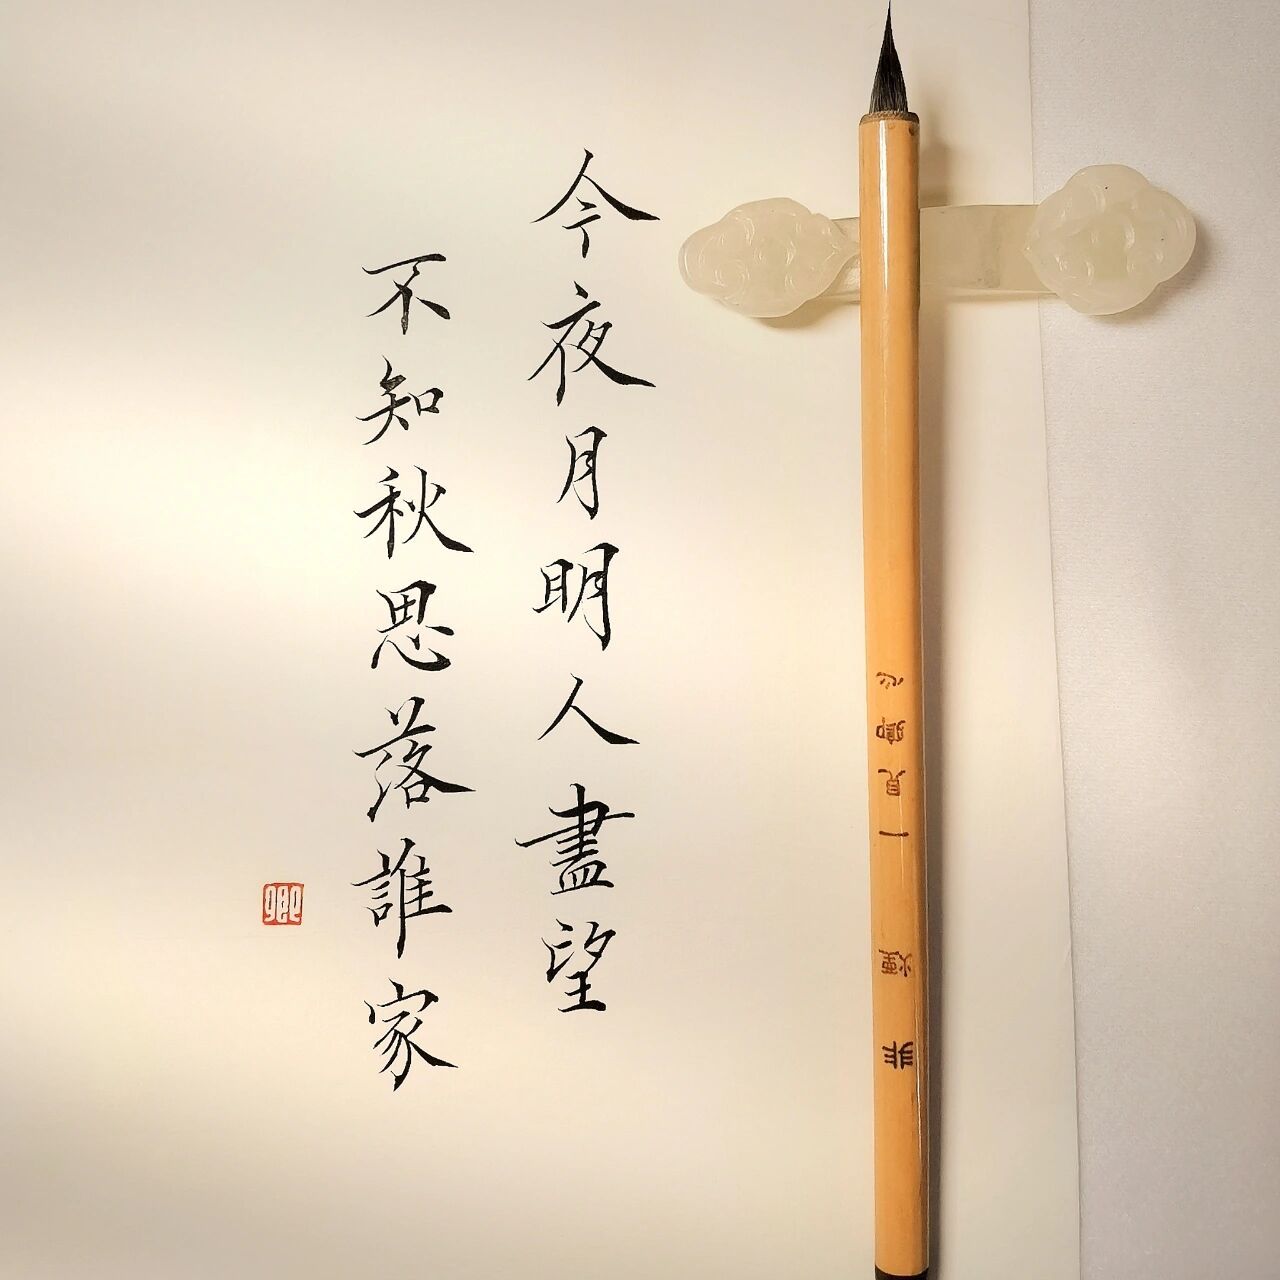 今夜月明人盡望
不知秋思落誰家
一見卿心
非煙